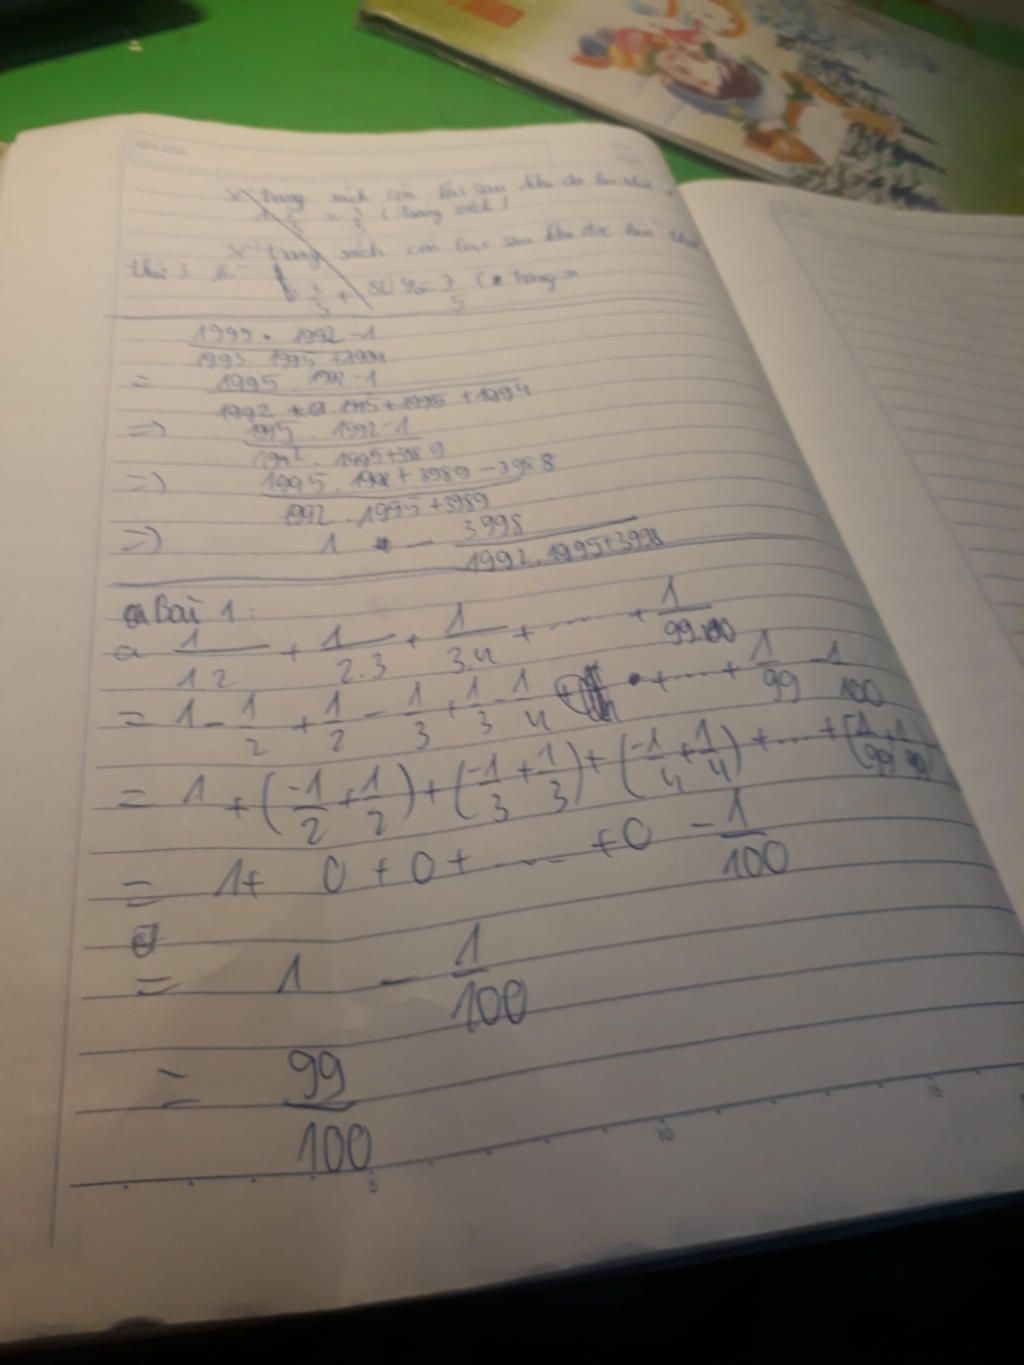 Số trang sách còn lại sau khi đọc lần thứ
= 3/5 (trang sách)
Số trang sách còn lại sau khi đọc lần thứ
thứ 3 là
1995 . 1992 - 1 / 1993 . 1995 + 1994
= 1995 . 1992 - 1 / 1992 . 1995 + 1995 + 1994
=> 1995 . 1992 - 1 / 1992 . 1995 + 3989
=> 1995 . 1992 + 3989 - 3988 / 1992 . 1995 + 3989
=> 1 - 3998 / 1992 . 1995 + 3998
Bài 1:
a 1/1.2 + 1/2.3 + 1/3.4 + ..... + 1/99.100
= 1 - 1/2 + 1/2 - 1/3 + 1/3 - 1/4 + .... + 1/99 - 1/100
= 1 + (-1/2 + 1/2) + (-1/3 + 1/3) + (-1/4 + 1/4) + .... + (
= 1 + 0 + 0 + ..... + 0 - 1/100
= 1 - 1/100
= 99/100
5 10 15